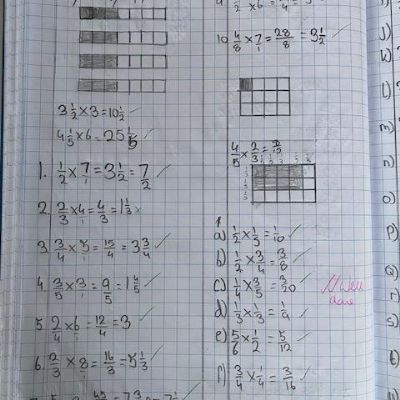 3 1/2 × 3 = 10 1/2
4 1/5 × 6 = 25 1/5
1. 1/2 × 7/1 = 3 1/2 = 7/2
2. 2/3 × 4/1 = 4/3 = 1 1/3
3. 3/4 × 5/1 = 15/4 = 3 3/4
4. 3/5 × 3/1 = 9/5 = 1 4/5
5. 2/4 × 6/1 = 12/4 = 3
6. 2/3 × 8/1 = 16/3 = 5 1/3
10 4/8 × 7/1 = 28/8 = 3 1/2
4/5 × 2/3 =
a) 1/2 × 1/5 = 1/10
b) 1/2 × 3/4 = 3/8
c) 1/4 × 3/5 = 3/20
d) 1/3 × 1/3 = 1/9
e) 5/6 × 1/2 = 5/12
f) 3/4 × 1/4 = 3/16
Well
done
J)
n)
o)
P)
Q)
r)
S)